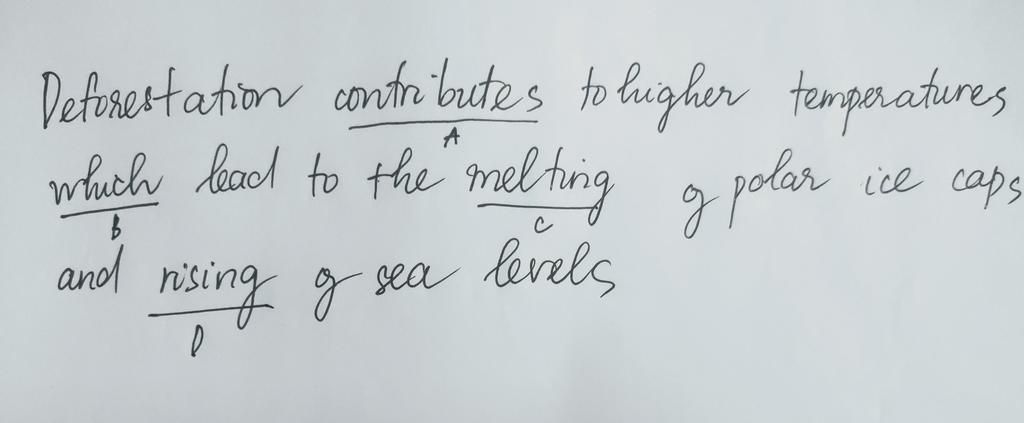 Deforestation contributes to higher temperatures
A
which lead to the melting of polar ice caps
B C
and rising of sea levels
D